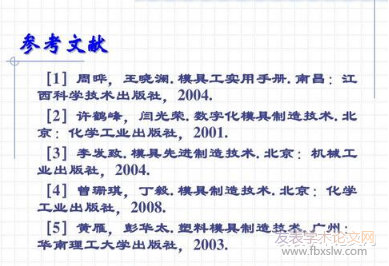 参考文献
[1] 周晔，王晓澜.模具工实用手册.南昌：江
西科学技术出版社，2004.
[2] 许鹤峰，闫光荣.数字化模具制造技术.北
京：化学工业出版社，2001.
[3] 李发致.模具先进制造技术.北京：机械工
业出版社，2004.
[4] 曾珊琪，丁毅.模具制造技术.北京：化学
工业出版社，2008.
[5] 黄雁，彭华太.塑料模具制造技术.广州：
华南理工大学出版社，2003.
发表学术论文网
www.fbxslw.com